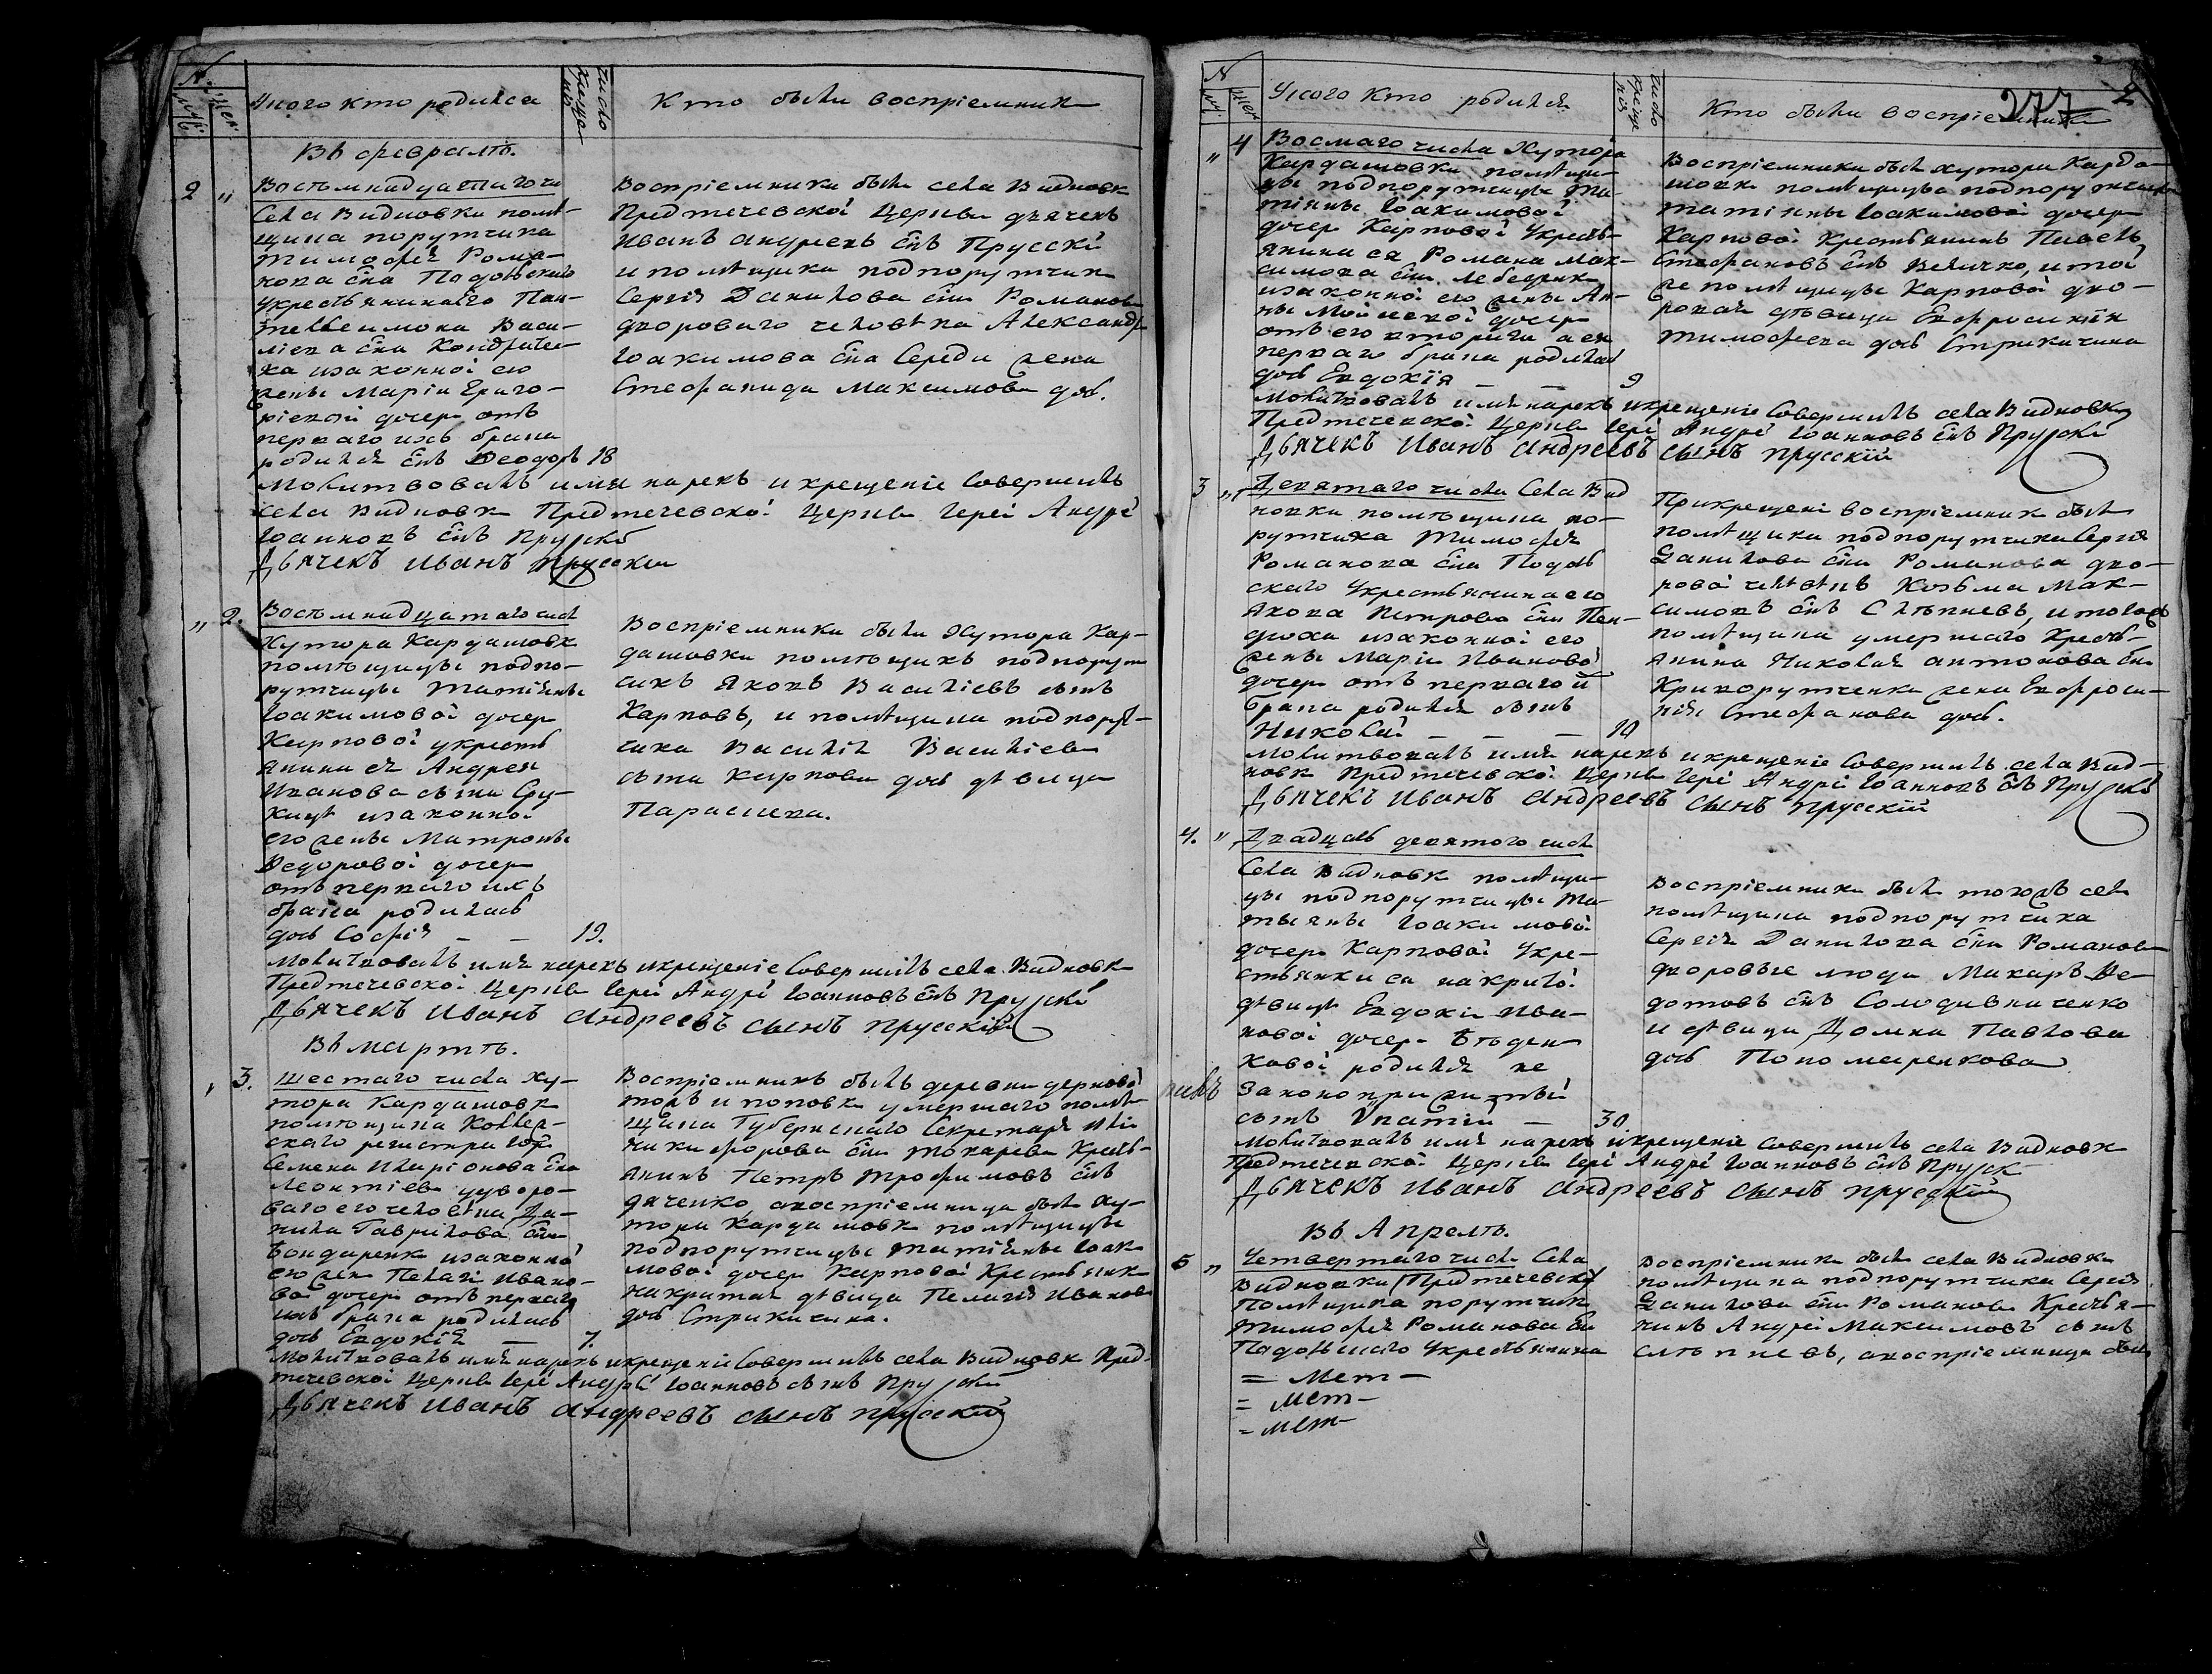 №
муж:
жен:
Укого кто родился
число крещенія
Кто были воспріемники
Въ февралѣ.
2 "
Восѣмнадцатаго чи
Села Видновки помѣ-
щика порутчика
Тимофея Рома-
нова сна Подольскаго
укрестьянинаего Пан-
телеимона Васи-
ліева сна Кондратен-
ка изаконной его
жены Маріи Григо-
ріевой дочери отъ
перваго ихъ брака
родился снъ Ѳеодоръ 18
Воспріемники были села Видновки
Предтечевской Церкви дьячекъ
Иванъ андреевъ снъ Прускій
и помѣщика подпорутчика
Сергія Данилова сна Романова
двороваго человѣка Александра
Іоакимова сна Середы жена
Стефанида Максимова дочь.
Молитвовалъ имя нарекъ и крещеніе совершилъ
села Видновки Предтечевской Церкви Іерей Андрей
Іоанновъ снъ Прускій
Дьячекъ Иванъ Прусскій
" 2.
Восѣмнадцатаго числ
Хутора Кардашовки
помѣщицы подпо-
рутчицы Татіяны
Іоакимовой дочери
Карповой укресть
янина ея Андрея
Иванова сына
изаконной
его жены Матроны
Ѳедоровой дочери
отъ перваго ихъ
брака родилась
дочь Софія — — 19.
Воспріемники были Хутора Кар-
дашовки помѣщикъ подпорут
чикъ Яковъ Василіевъ сынъ
Карповъ, и помѣщика подпорут-
чика Василія Василіева
сына Карпова дочь дѣвица
Параскева.
Молитвовалъ имя нарекъ икрещеніе совершилъ села Видновки
Предтечевской Церкви Іерей Андрей Іоанновъ снъ Прускій
Дьячекъ Иванъ Андреевъ сынъ прусскій
Въ мартѣ.
" 3.
Шестаго числа Ху-
тора Кардашовки
помѣщика Коллеж-
скаго регистратора
Семена Иларіонова сна
Леонтіева удворо-
ваго его человѣка Да-
нила Гаврилова сна
Бондаренка изаконной
его жены Пелагіи Ивано-
вой дочери отъ перваго
ихъ брака родилась
дочь Евдокія — 7.
Воспріемникъ былъ деревни
и поповки умершаго помѣ-
щика Губернскаго Секретаря
сна токарева Кресть-
янинъ Петръ Трофимовъ снъ
дяченко, авоспріемница была Ху-
тора Кардашовки помѣщицы
подпорутчицы Татіяны Іоаки
мовой дочери Карповой Крестьянк
накритая дѣвица Пелагія Иванова
дочь Стрикачина.
Молитвовалъ имя нарекъ икрещеніе совершилъ села Видновки Пред-
течевской Церкви Іерей Андрей Іоанновъ сынъ Прускій
Дьячекъ Иванъ андреевъ сынъ прусскій
277
№
муж:
жен:
Укого кто родился
число крещенія
Кто были воспріемники
" 4
Восмаго числа Хутора
Кардашовки помѣщи-
цы подпорутчицы Та-
тіяны Іоакимовой
дочери Карповой Укресть-
янина ея Романа Мак-
симова сна Лебедика
изаконной его жены Ан-
ны Моисеевой дочери
отъ его втораго а ея
перваго брака родилась
дочь Евдокія — — 9
Воспріемники были хутора Карда-
шовки помѣщицы подпорутчицы
татіяны Іоакимовой дочери
Карповой Крестьянинъ Павелъ
Стефановъ снъ Величко, и той
же помѣщицы Карповой дво-
ровая дѣвица Евфросинія
тимофеева дочь Стрикачина
Молитвовалъ имя нарекъ икрещеніе Совершилъ села Видновки
Предтечевской Церкви Іерей Андрей Іоанновъ снъ Прускій
Дьячекъ Иванъ Андреевъ сынъ прусскій
3 "
Девятаго числа Села Вид
новки помѣщика по-
рутчика Тимофея
Романова сна Подоль
скаго Укрестьянинаего
Якова Петрова сна Пен-
дюха изаконной его
жены Маріи Ивановой
дочери отъ перваго и
брака родился сынъ
Николай — — — 10
Прикрещеніи воспріемники были
помѣщика подпорутчика Сергія
Данилова сна Романова дво-
ровой человѣкъ Козьма Мак-
симовъ снъ Слѣпневъ, и тогожъ
помѣщика умершаго Кресть-
янина Николая антонова сна
Криворутченка жена Евфроси-
нія Стефанова дочь.
Молитвовалъ имя нарекъ икрещеніе Совершилъ села Вид-
новки Предтечевской Церкви Іерей Андрей Іоанновъ снъ Прускій
Дьячекъ Иванъ Андреевъ сынъ прусскій
4. "
Двадцать девятого числ
Села Видновки помѣщи-
цы подпорутчицы Та-
тьяны Іоакимовой
дочери Карповой Укре-
стьянки ея накритой
дѣвицы Евдокіи Ива-
новой дочери
родился не
законноприжитый
сынъ Ипатій — 30.
Воспріемники были тогожъ села
помѣщика подпорутчика
Сергія Данилова сна Романова
дворовые люди Макаръ Ѳе-
дотовъ снъ Солодивниченко
и дѣвица Домна Павлова
дочь Пономаренкова
Молитвовалъ имя нарекъ икрещеніе Совершилъ села Видновки
Предтечевской Церкви Іерей Андрей Іоанновъ снъ Прускій
Дьячекъ Иванъ Андреевъ сынъ прусскій
Въ Апрелѣ.
5 "
Четвертаго числа Села
Видновки (Предтечевской
Помѣщика порутчика
Тимофея Романова сна
Подольскаго Укрестьянина
Воспріемники были села Видновки
помѣщика подпорутчика Сергія
Данилова сна Романова Крестья-
нинъ Андрей Максимовъ сынъ
слѣпневъ, авоспріемница была
= Мет —
= Мет —
= Мет —